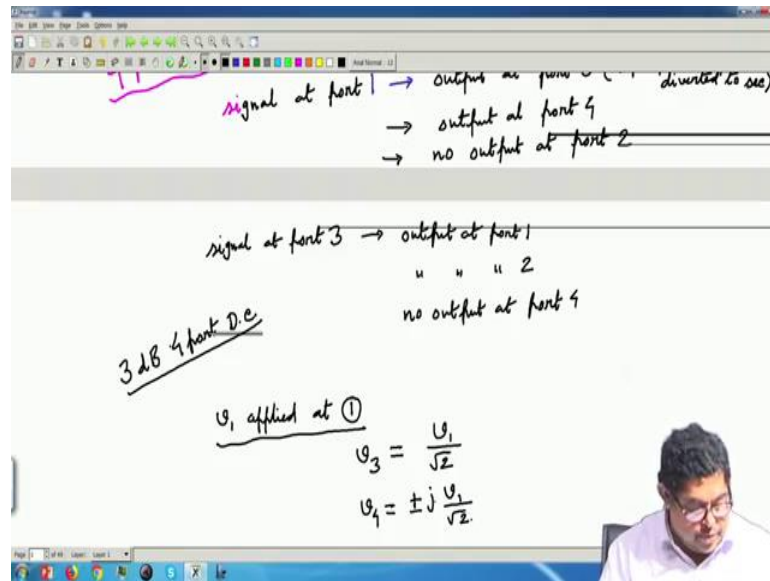 File Edit View Page Tools Options help
signal at port 1 → output at port
diverted to sec)
→ output at port 4
→ no output at port 2
signal at port 3 → output at port 1
" " " 2
no output at port 4
3 dB 4 port D.C
v₁ applied at ①
v₃ = v₁/√2
v₄ = ± j v₁/√2.